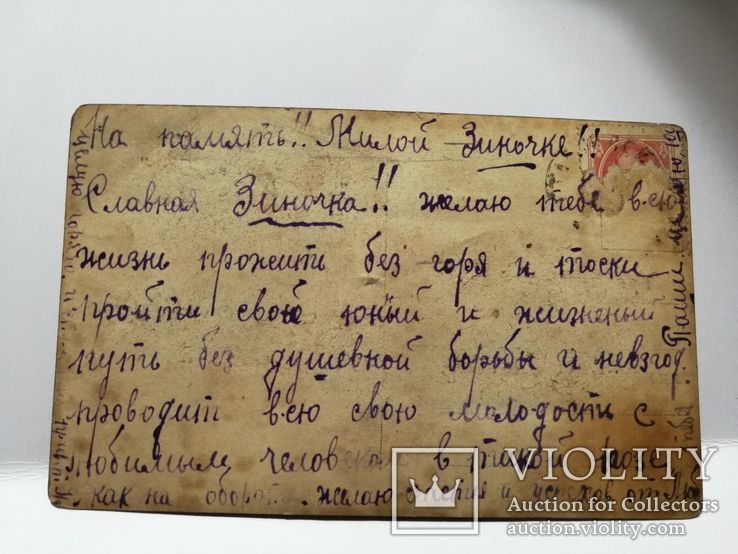 На память!! Милой Зиночке!!
Славная Зиночка!! желаю тебе всю
жизнь прожить без горя и тоски
пройти свой юный и жизненый
путь без душевной борьбы и невзгод.
проводит всю свою молодости с
любимым человеком в такой позе
как на оборот желаю счастия и успехов от
целую горячо
Пиши целую
VIOLITY
Auction for Collectors
auction.violity.com